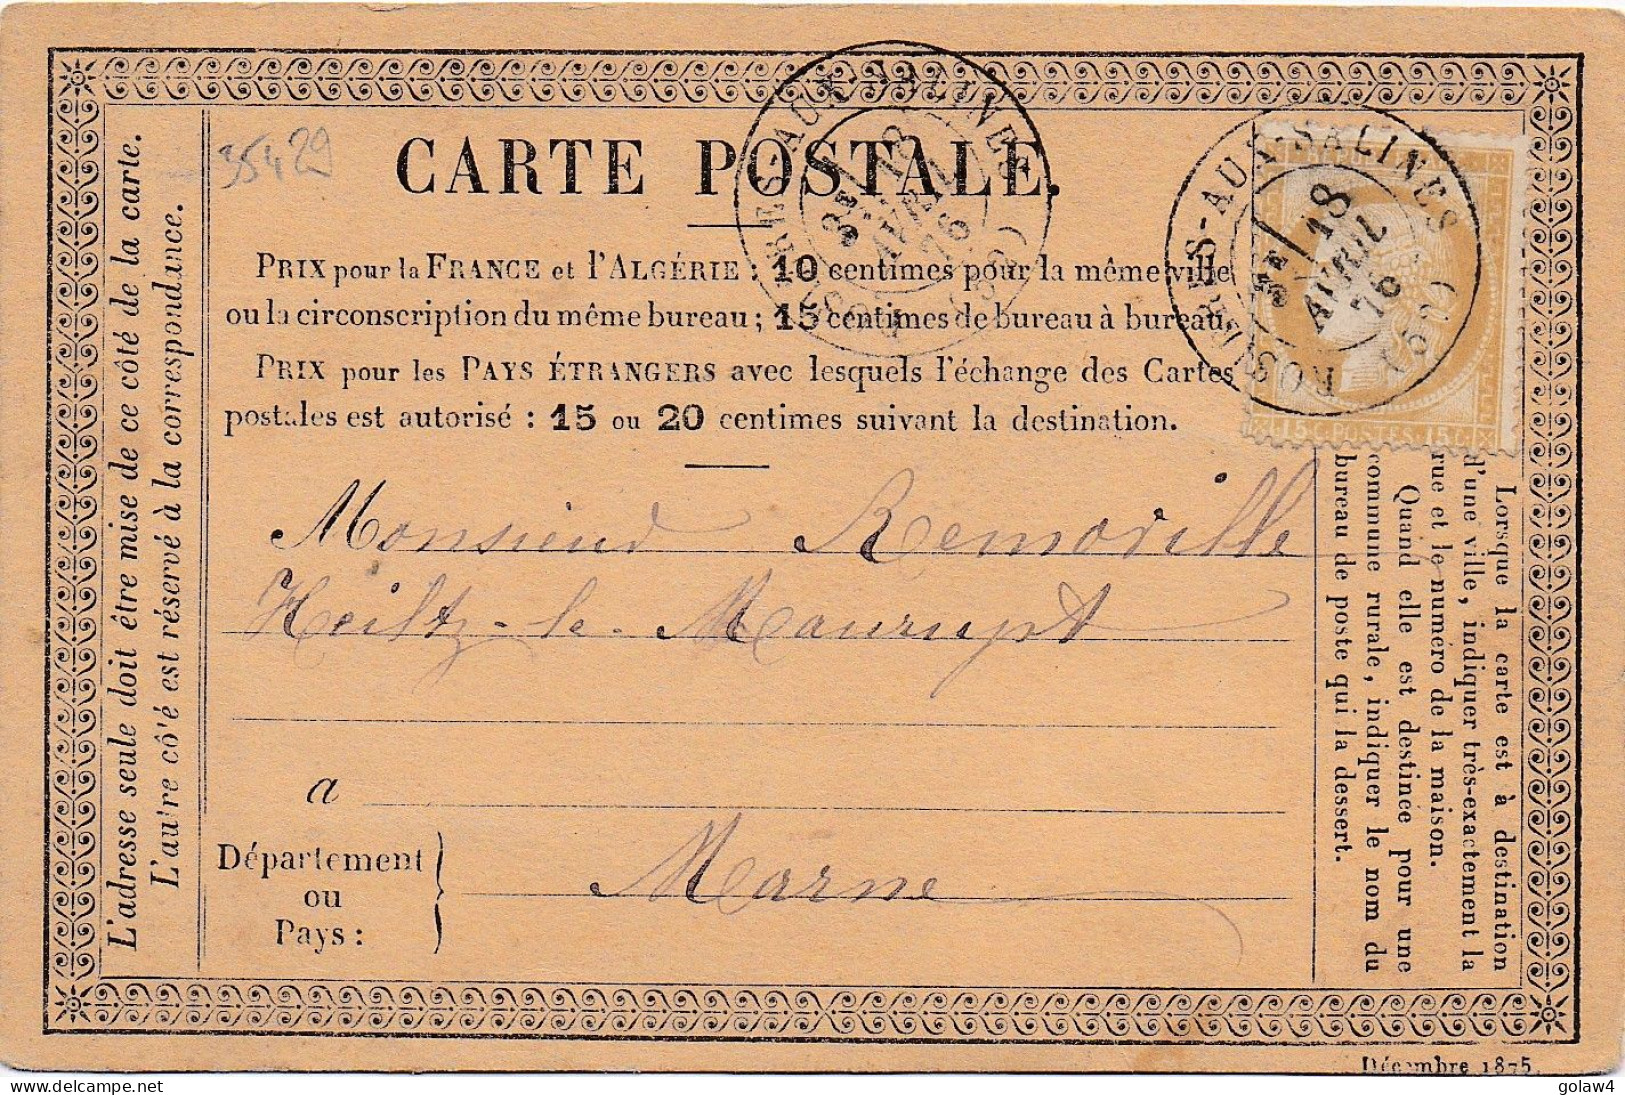 35429
CARTE POSTALE.
ROSIÈRES-AUX-SALINES (52)
3E/ 18 AVRIL 76
ROSIÈRES-AUX-SALINES (52)
3E/ 18 AVRIL 76
15 C. POSTES 15 C.
PRIX pour la FRANCE et l'ALGÉRIE : 10 centimes pour la même ville
ou la circonscription du même bureau ; 15 centimes de bureau à bureau.
PRIX pour les PAYS ÉTRANGERS avec lesquels l'échange des Cartes
postales est autorisé : 15 ou 20 centimes suivant la destination.
Monsieur Removille
Heiltz-le-Maurupt
a
Département
ou
Pays :
Marne
L'adresse seule doit être mise de ce côté de la carte.
L'autre côté est réservé à la correspondance.
Lorsque la carte est à destination
d'une ville, indiquer très-exactement la
rue et le numéro de la maison.
Quand elle est destinée pour une
commune rurale, indiquer le nom du
bureau de poste qui la dessert.
Décembre 1875.
delcampe.net
golaw4